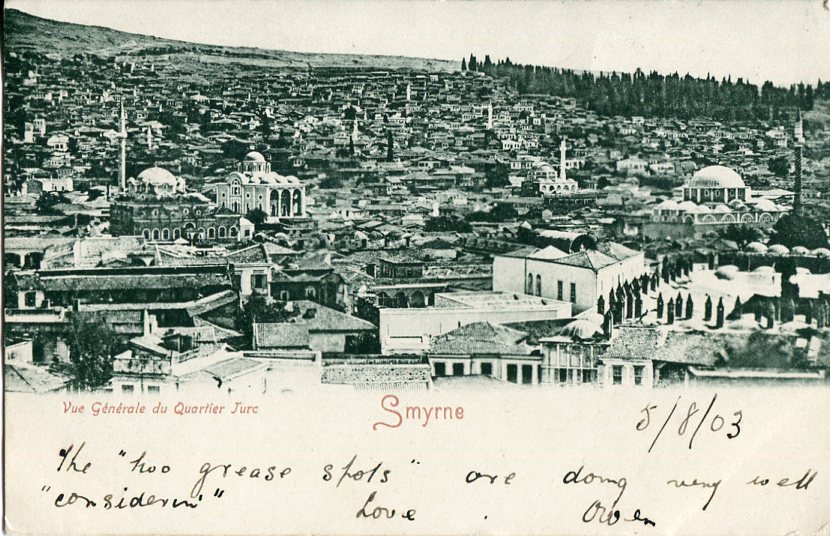 Vue Générale du Quartier Turc
Smyrne
5/8/03
The "two grease spots" are doing very well
"considerin'" Love. Owen